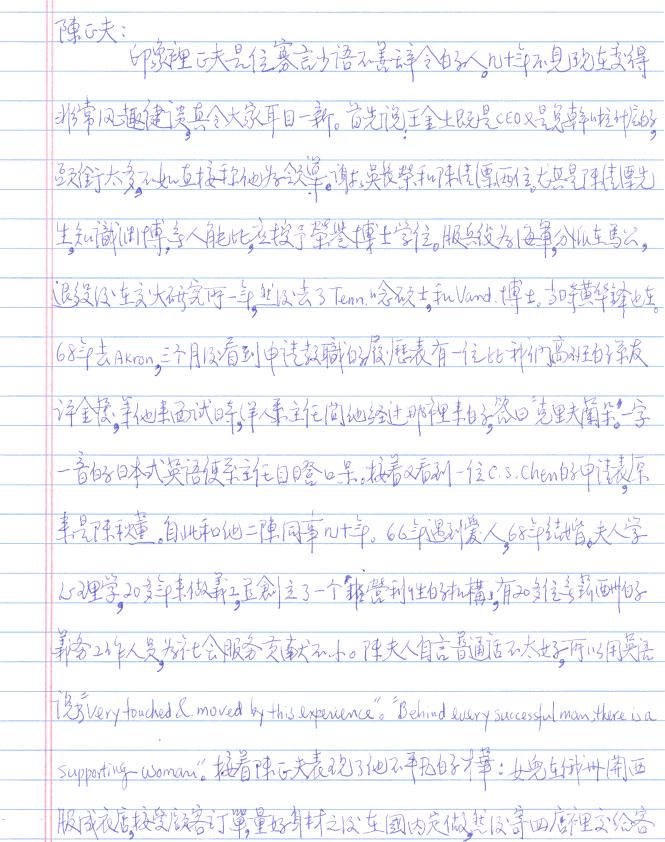 陳正夫：
印象裡正夫是位寡言少語不善辭令的人，几十年不見現在变得
非常风趣健谈真令大家耳目一新。首先说王金土既是CEO又是
头銜太多，不如直接称他为领導。谢扶吳長榮和陳陆潭两位。尤其是陳陆潭先
生，知識渊博，无人能比，应授予榮譽博士学位。服兵役为海軍，分派在馬公，
退役後在交大研究所一年，然後去了Tenn.唸硕士，和Vand.博士。当時黄華鋒也在。
68年去Akron，三个月後看到申请教職的履歷表有一位比我們高班的学友
许金榜，等他来面试時，洋人系主任問他经过那裡来的，答曰“克里夫蘭朵。”一字
一音的日本式英语使系主任目瞪口呆。接着又看到一位C.S.Chen的申请表，原
来是陳秋薰。自此和他二陳同事几十年。66年遇到爱人，68年結婚。夫人学
心理学，20多年来做義工，並創立了一个“非營利性的机構”，有20多位无薪酬的
義务工作人员，为社会服务贡献不小。陳夫人自言普通话不太好，所以用英语
说“Very touched & moved by this experience”。“Behind every successful man, there is a
supporting woman”。接着陳正夫表现了他不平凡的才華：女兒在 州開西
服成衣店，接受顾客订單，量好身材之後在國内定做，然後寄回店裡交给客